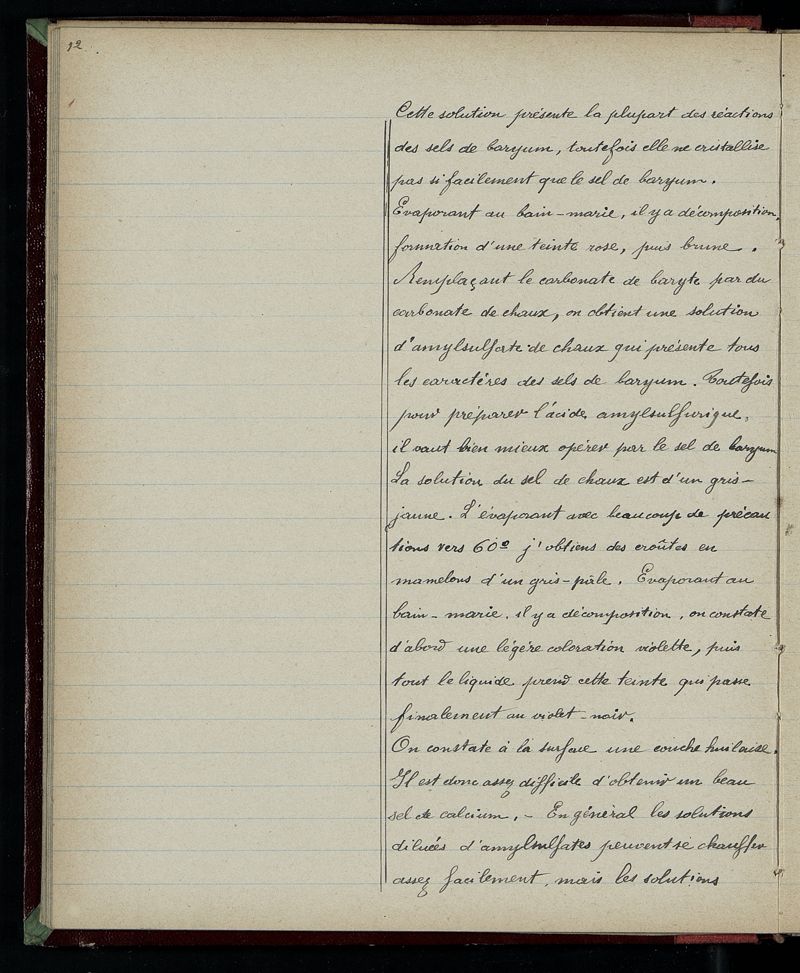 12
Cette solution présente la plupart des réactions
des sels de baryum, toutefois elle ne cristallise
pas si facilement que le sel de baryum.
Evaporant au bain-marie, il y a décomposition,
formation d'une teinte rose, puis brune.
Remplaçant le carbonate de baryte par du
carbonate de chaux, on obtient une solution
d'amylsulfate de chaux qui présente tous
les caractères des sels de baryum. Toutefois
pour préparer l'acide amylsulfurique,
il vaut bien mieux opérer par le sel de baryum
La solution du sel de chaux est d'un gris-
jaune. L'évaporant avec beaucoup de précau
tions vers 60° j'obtiens des croûtes en
mamelons d'un gris-pâle. Evaporant au
bain-marie, il y a décomposition, on constate
d'abord une légère coloration violette, puis
tout le liquide prend cette teinte qui passe
finalement au violet-noir.
On constate à la surface une couche huileuse.
Il est donc assez difficile d'obtenir un beau
sel de calcium. - En général les solutions
diluées d'amylsulfates peuvent se chauffer
assez facilement, mais les solutions